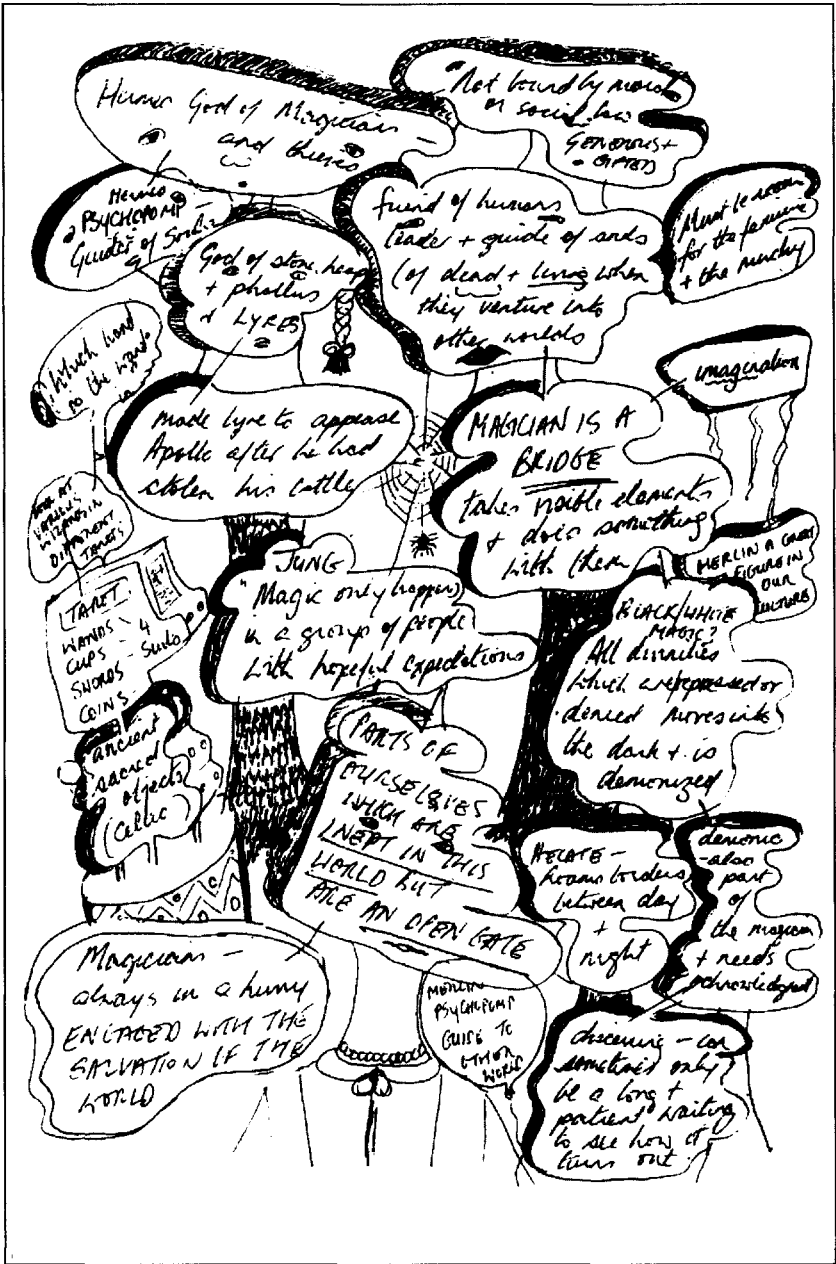 Hermes God of Magicians —
and thieves
Not bound by moral
or social law
GENEROUS +
GIFTED
Hermes
PSYCHOPOMP —
Guider of Souls
God of stone heap
+ phallus
+ LYRES
friend of humans
leader + guide of souls
(of dead + living when
they venture into
other worlds
Must be room
for the feminine
+ the
Which hand
is the wand
in
imagination
made lyre to appease
Apollo after he had
stolen his cattle
MAGICIAN IS A
BRIDGE
takes visible elements
+ does something
with them
LOOK AT
VARIOUS
WIZARDS IN
DIFFERENT
TAROTS
MERLIN A GREAT
FIGURE IN
OUR
CULTURE
TAROT
WANDS
CUPS - 4
SWORDS - Suits
COINS
JUNG
"Magic only happens
in a group of people
with hopeful expectations
BLACK/WHITE
MAGIC?
All divinities
which are repressed or
denied moves into
the dark + is
demonized
ancient
sacred
objects
Celtic
PARTS OF
OURSELVES
WHICH ARE
INEPT IN THIS
WORLD BUT
ARE AN OPEN GATE
HECATE —
roams borders
between day
+
night
demonic
- also
part
of
the magician
+ needs
acknowledged
Magicians —
always in a hurry
ENGAGED WITH THE
SALVATION OF THE
WORLD
MERLIN
PSYCHOPOMP
GUIDE TO
OTHER
WORLD
discerning — can
sometimes only
be a long +
patient waiting
to see how it
turns out